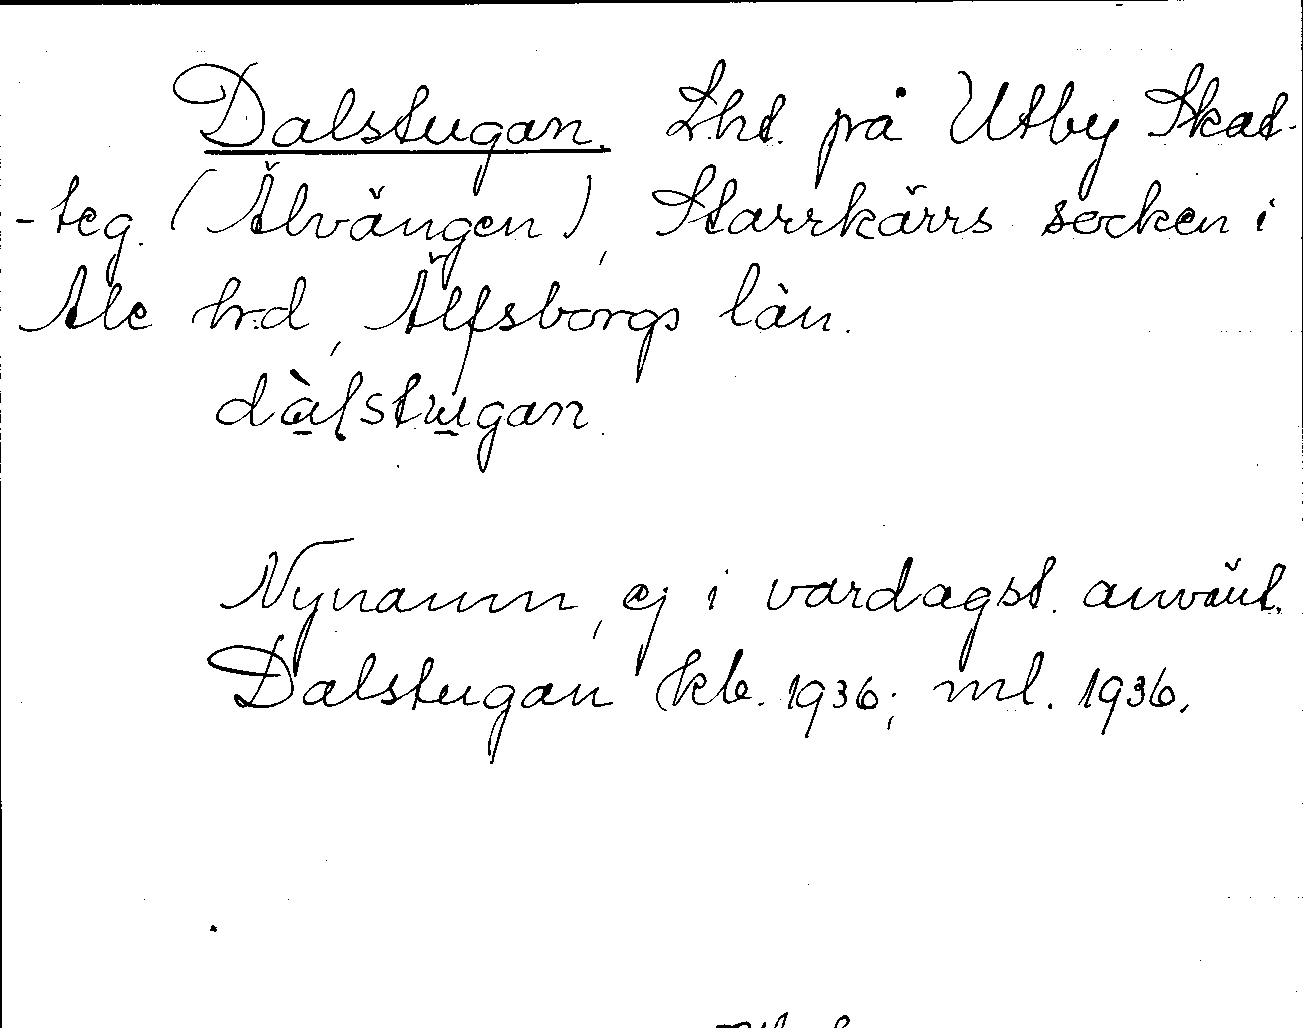 Dalstugan. Lht. på Utby Skat-
-teg. (Älvängen), Starrkärrs socken i
Ale hrd, Älfsborgs län.
dàlstugan
Nynamn, ej i vardagst. använt.
Dalstugan kb. 1936; ml. 1936.